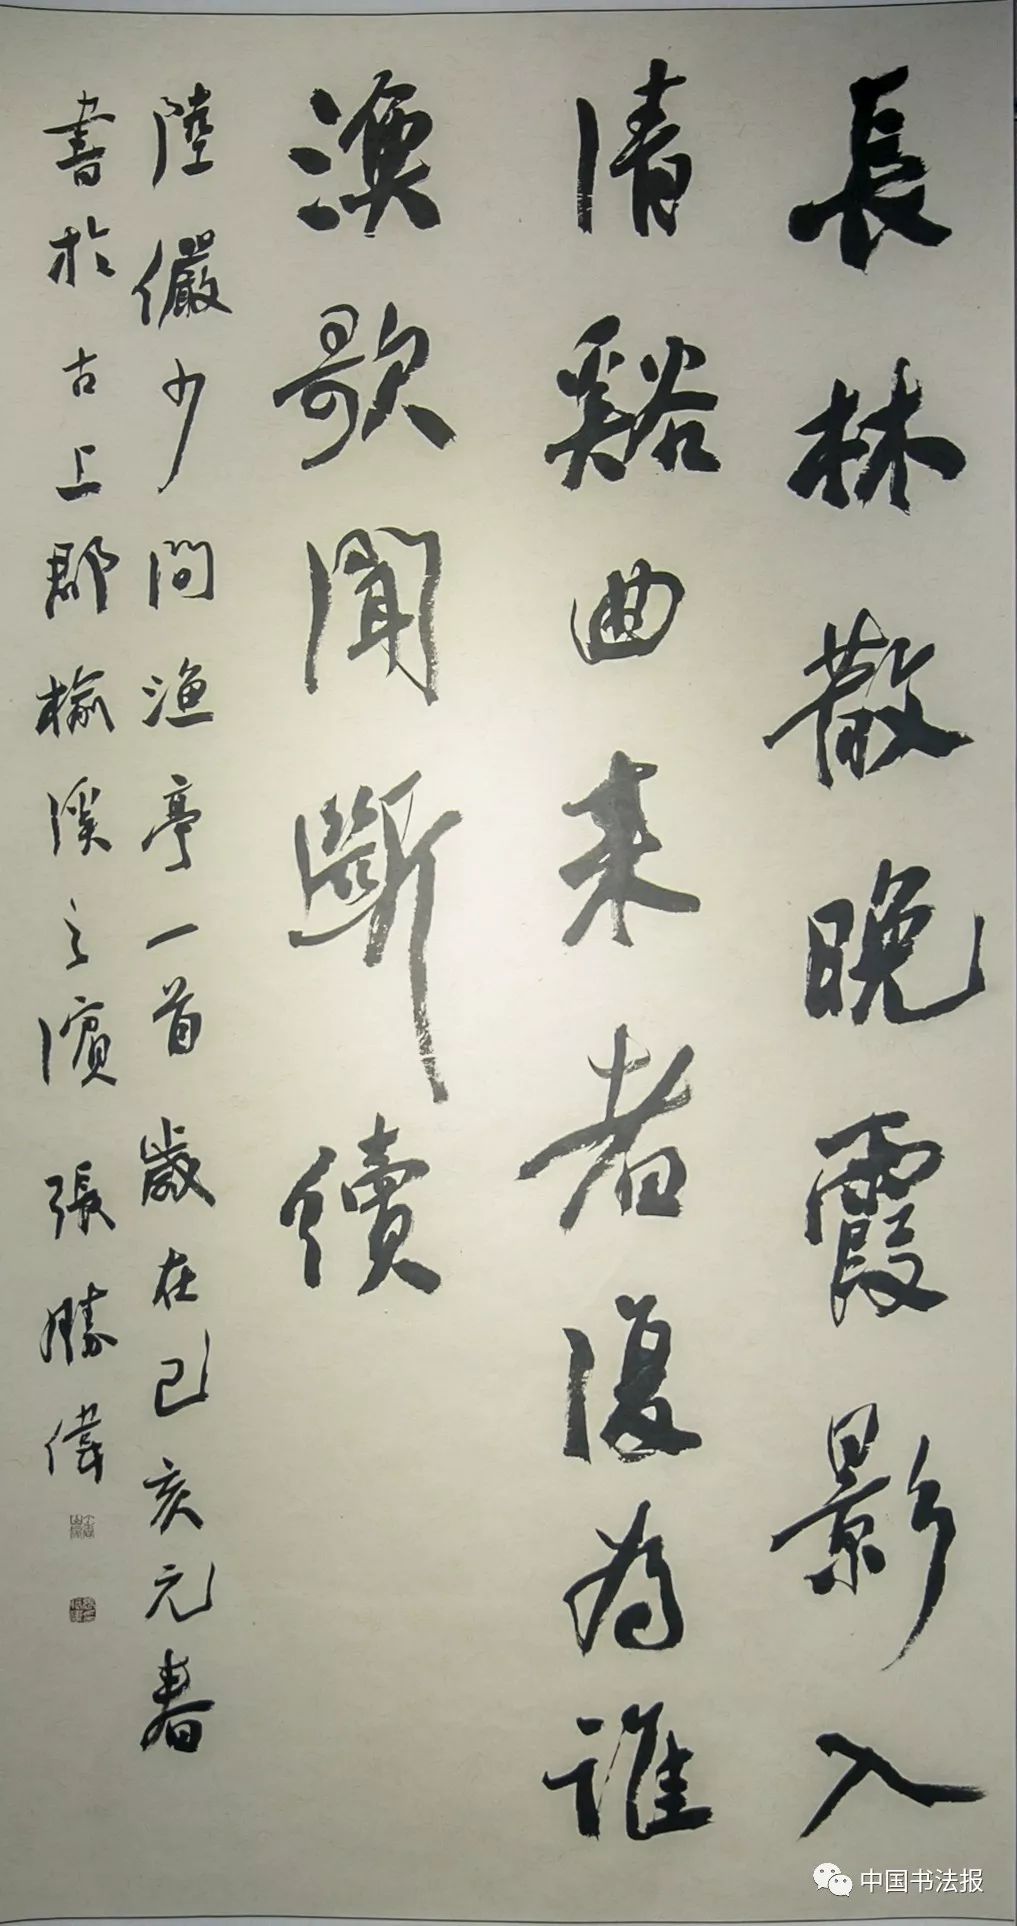 長林散晚霞影入
清谿曲来者復為誰
漁歌聞斷續
陸儼少問漁亭一首歲在己亥元春
書於古上郡榆溪之濱張勝偉
中国书法报